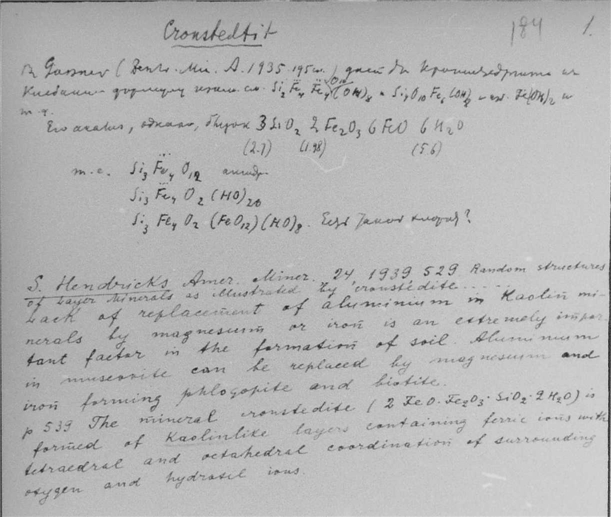 Cronstedtit
184 1.
В. Gossner ( 1935 195 ) дает для Кронштедтита из
формулу Si2 Fe4 Fe4 (OH)8 = Si4O10 Fe (OH) Fe(OH)2 и
т.д.
Его анализ, однако, близок 3SiO2 2Fe2O3 6FeO 6H2O
(2.7) (1.98) (5.6)
т.е. Si3 Fe4 O12
Si3 Fe4 O2 (HO)20
Si3 Fe4 O2 (FeO12)(HO)8. Есть такая ?
S. Hendricks Amer. Miner. 24 1939 529 Random structures
of layer minerals as illustrated by cronstedite.....
Lack of replacement of aluminium in Kaolin mi-
nerals by magnesium or iron is an extremely impor-
tant factor in the formation of soil. Aluminium
in muscovite can be replaced by magnesium and
iron forming phlogopite and biotite.
p 539 The mineral cronstedite (2 FeO·Fe2O3·SiO2·2H2O) is
formed of Kaolinlike layers containing ferric ions with
tetraedral and octahedral coordination of surrounding
oxygen and hydroxil ions.